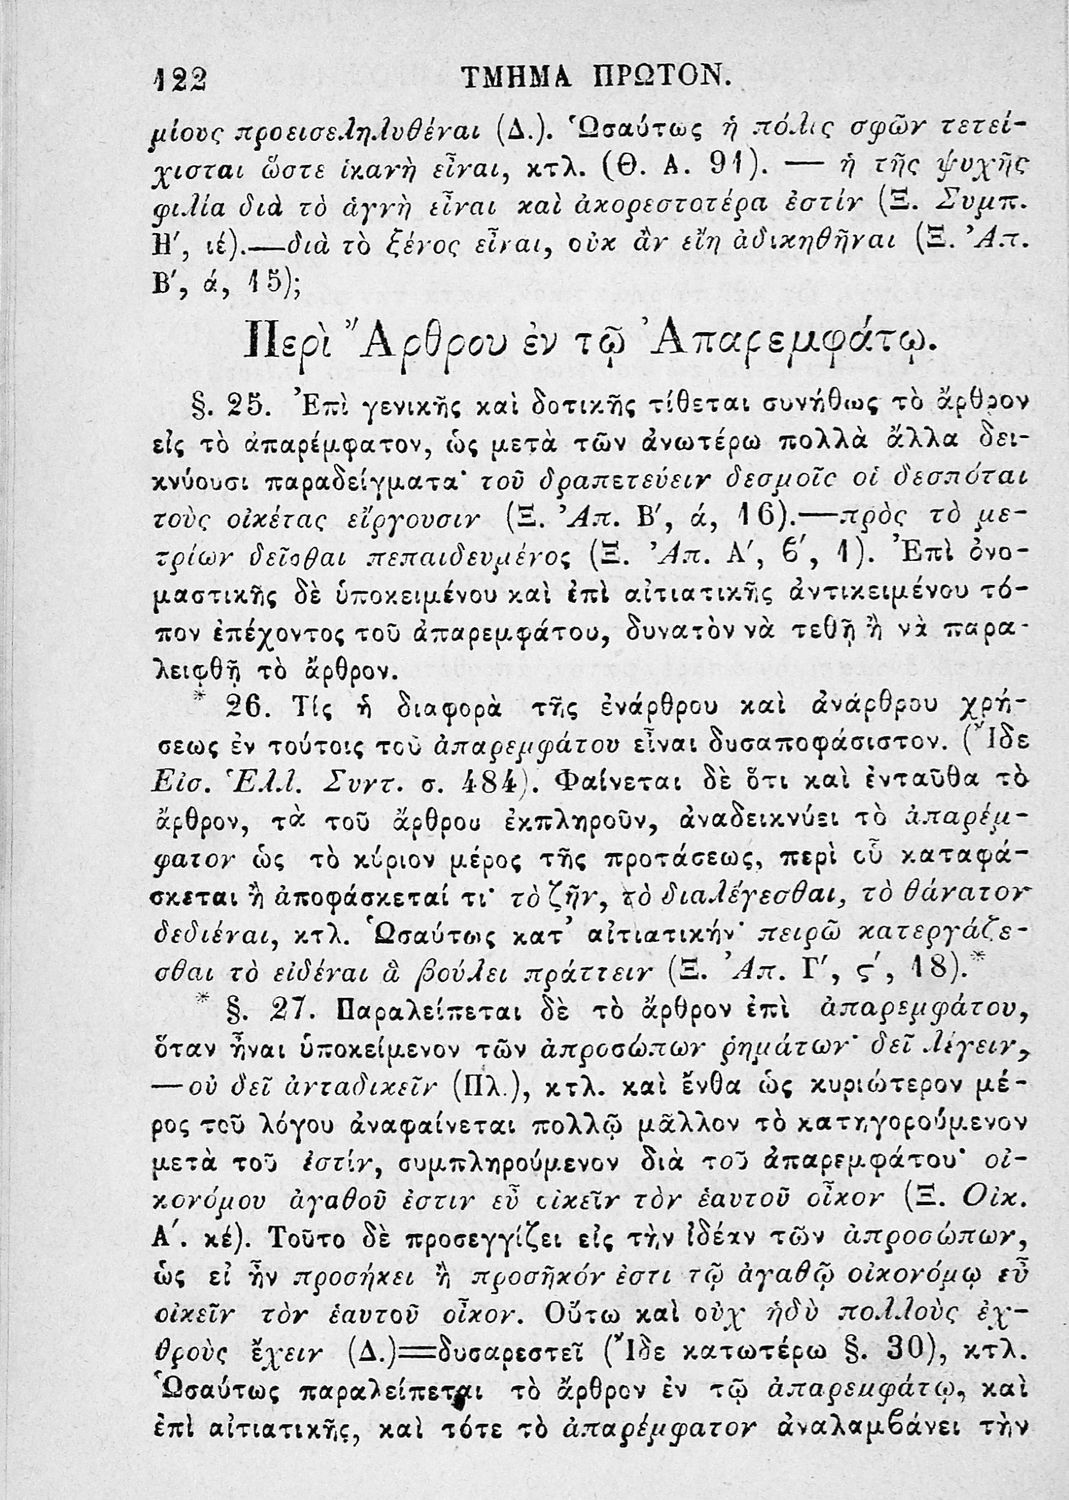 122 ΤΜΗΜΑ ΠΡΩΤΟΝ.
μίους προεισεληλυθέναι (Δ.). Ὡσαύτως ἡ πόλις σφῶν τετεί-
χισται ὥστε ἱκανὴ εἶναι, κτλ. (Θ. Α. 91). — ἡ τῆς ψυχῆς
φιλία διὰ τὸ ἁγνὴ εἶναι καὶ ἀκορεστοτέρα ἐστίν (Ξ. Συμπ.
Η′, ιέ).—διὰ τὸ ξένος εἶναι, οὐκ ἂν εἴη ἀδικηθῆναι (Ξ. Ἀπ.
Β′, ά, 15);
Περὶ Ἄρθρου ἐν τῷ Ἀπαρεμφάτῳ.
§. 25. Ἐπὶ γενικῆς καὶ δοτικῆς τίθεται συνήθως τὸ ἄρθρον
εἰς τὸ ἀπαρέμφατον, ὡς μετὰ τῶν ἀνωτέρω πολλὰ ἄλλα δει-
κνύουσι παραδείγματα· τοῦ δραπετεύειν δεσμοῖς οἱ δεσπόται
τοὺς οἰκέτας εἴργουσιν (Ξ. Ἀπ. Β′, ά, 16).—πρὸς τὸ με-
τρίων δεῖσθαι πεπαιδευμένος (Ξ. Ἀπ. Α′, ϐ′, 1). Ἐπὶ ὀνο-
μαστικῆς δὲ ὑποκειμένου καὶ ἐπὶ αἰτιατικῆς ἀντικειμένου τό-
πον ἐπέχοντος τοῦ ἀπαρεμφάτου, δυνατὸν νὰ τεθῇ ἢ νὰ παρα-
λειφθῇ τὸ ἄρθρον.
* 26. Τίς ἡ διαφορὰ τῆς ἐνάρθρου καὶ ἀνάρθρου χρή-
σεως ἐν τούτοις τοῦ ἀπαρεμφάτου εἶναι δυσαποφάσιστον. (Ἴδε
Εἰσ. Ἑλλ. Συντ. σ. 484). Φαίνεται δὲ ὅτι καὶ ἐνταῦθα τὸ
ἄρθρον, τὰ τοῦ ἄρθρου ἐκπληροῦν, ἀναδεικνύει τὸ ἀπαρέμ-
φατον ὡς τὸ κύριον μέρος τῆς προτάσεως, περὶ οὗ καταφά-
σκεται ἢ ἀποφάσκεταί τι· τὸ ζῆν, τὸ διαλέγεσθαι, τὸ θάνατον
δεδιέναι, κτλ. Ὡσαύτως κατ᾽ αἰτιατικήν· πειρῶ κατεργάζε-
σθαι τὸ εἰδέναι ἃ βούλει πράττειν (Ξ. Ἀπ. Γ′, ς′, 18).*
* §. 27. Παραλείπεται δὲ τὸ ἄρθρον ἐπὶ ἀπαρεμφάτου,
ὅταν ἦναι ὑποκείμενον τῶν ἀπροσώπων ῥημάτων· δεῖ λέγειν,
—οὐ δεῖ ἀνταδικεῖν (Πλ.), κτλ. καὶ ἔνθα ὡς κυριώτερον μέ-
ρος τοῦ λόγου ἀναφαίνεται πολλῷ μᾶλλον τὸ κατηγορούμενον
μετὰ τοῦ ἐστίν, συμπληρούμενον διὰ τοῦ ἀπαρεμφάτου· οἰ-
κονόμου ἀγαθοῦ ἐστιν εὖ οἰκεῖν τὸν ἑαυτοῦ οἶκον (Ξ. Οἰκ.
Α′. κέ). Τοῦτο δὲ προσεγγίζει εἰς τὴν ἰδέαν τῶν ἀπροσώπων,
ὡς εἰ ἦν προσήκει ἢ προσῆκόν ἐστι τῷ ἀγαθῷ οἰκονόμῳ εὖ
οἰκεῖν τὸν ἑαυτοῦ οἶκον. Οὕτω καὶ οὐχ ἡδὺ πολλοὺς ἐχ-
θροὺς ἔχειν (Δ.)=δυσαρεστεῖ (Ἴδε κατωτέρω §. 30), κτλ.
Ὡσαύτως παραλείπεται τὸ ἄρθρον ἐν τῷ ἀπαρεμφάτῳ, καὶ
ἐπὶ αἰτιατικῆς, καὶ τότε τὸ ἀπαρέμφατον ἀναλαμϐάνει τὴν